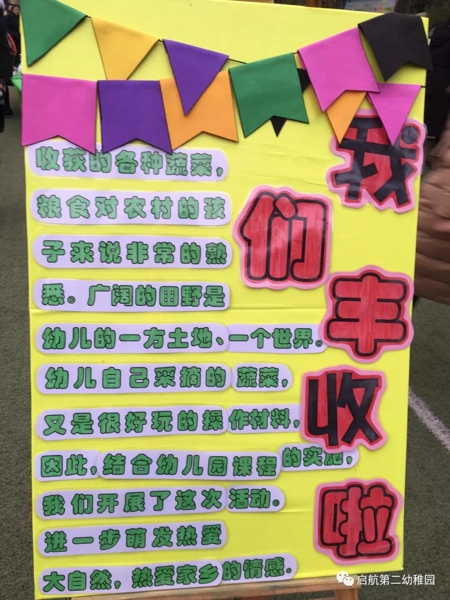 我们丰收啦
收获的各种蔬菜，
粮食对农村的孩
子来说非常的熟
悉。广阔的田野是
幼儿的一方土地、一个世界。
幼儿自己采摘的蔬菜，
又是很好玩的操作材料，
因此，结合幼儿园课程的实施，
我们开展了这次活动。
进一步萌发热爱
大自然，热爱家乡的情感。
启航第二幼稚园